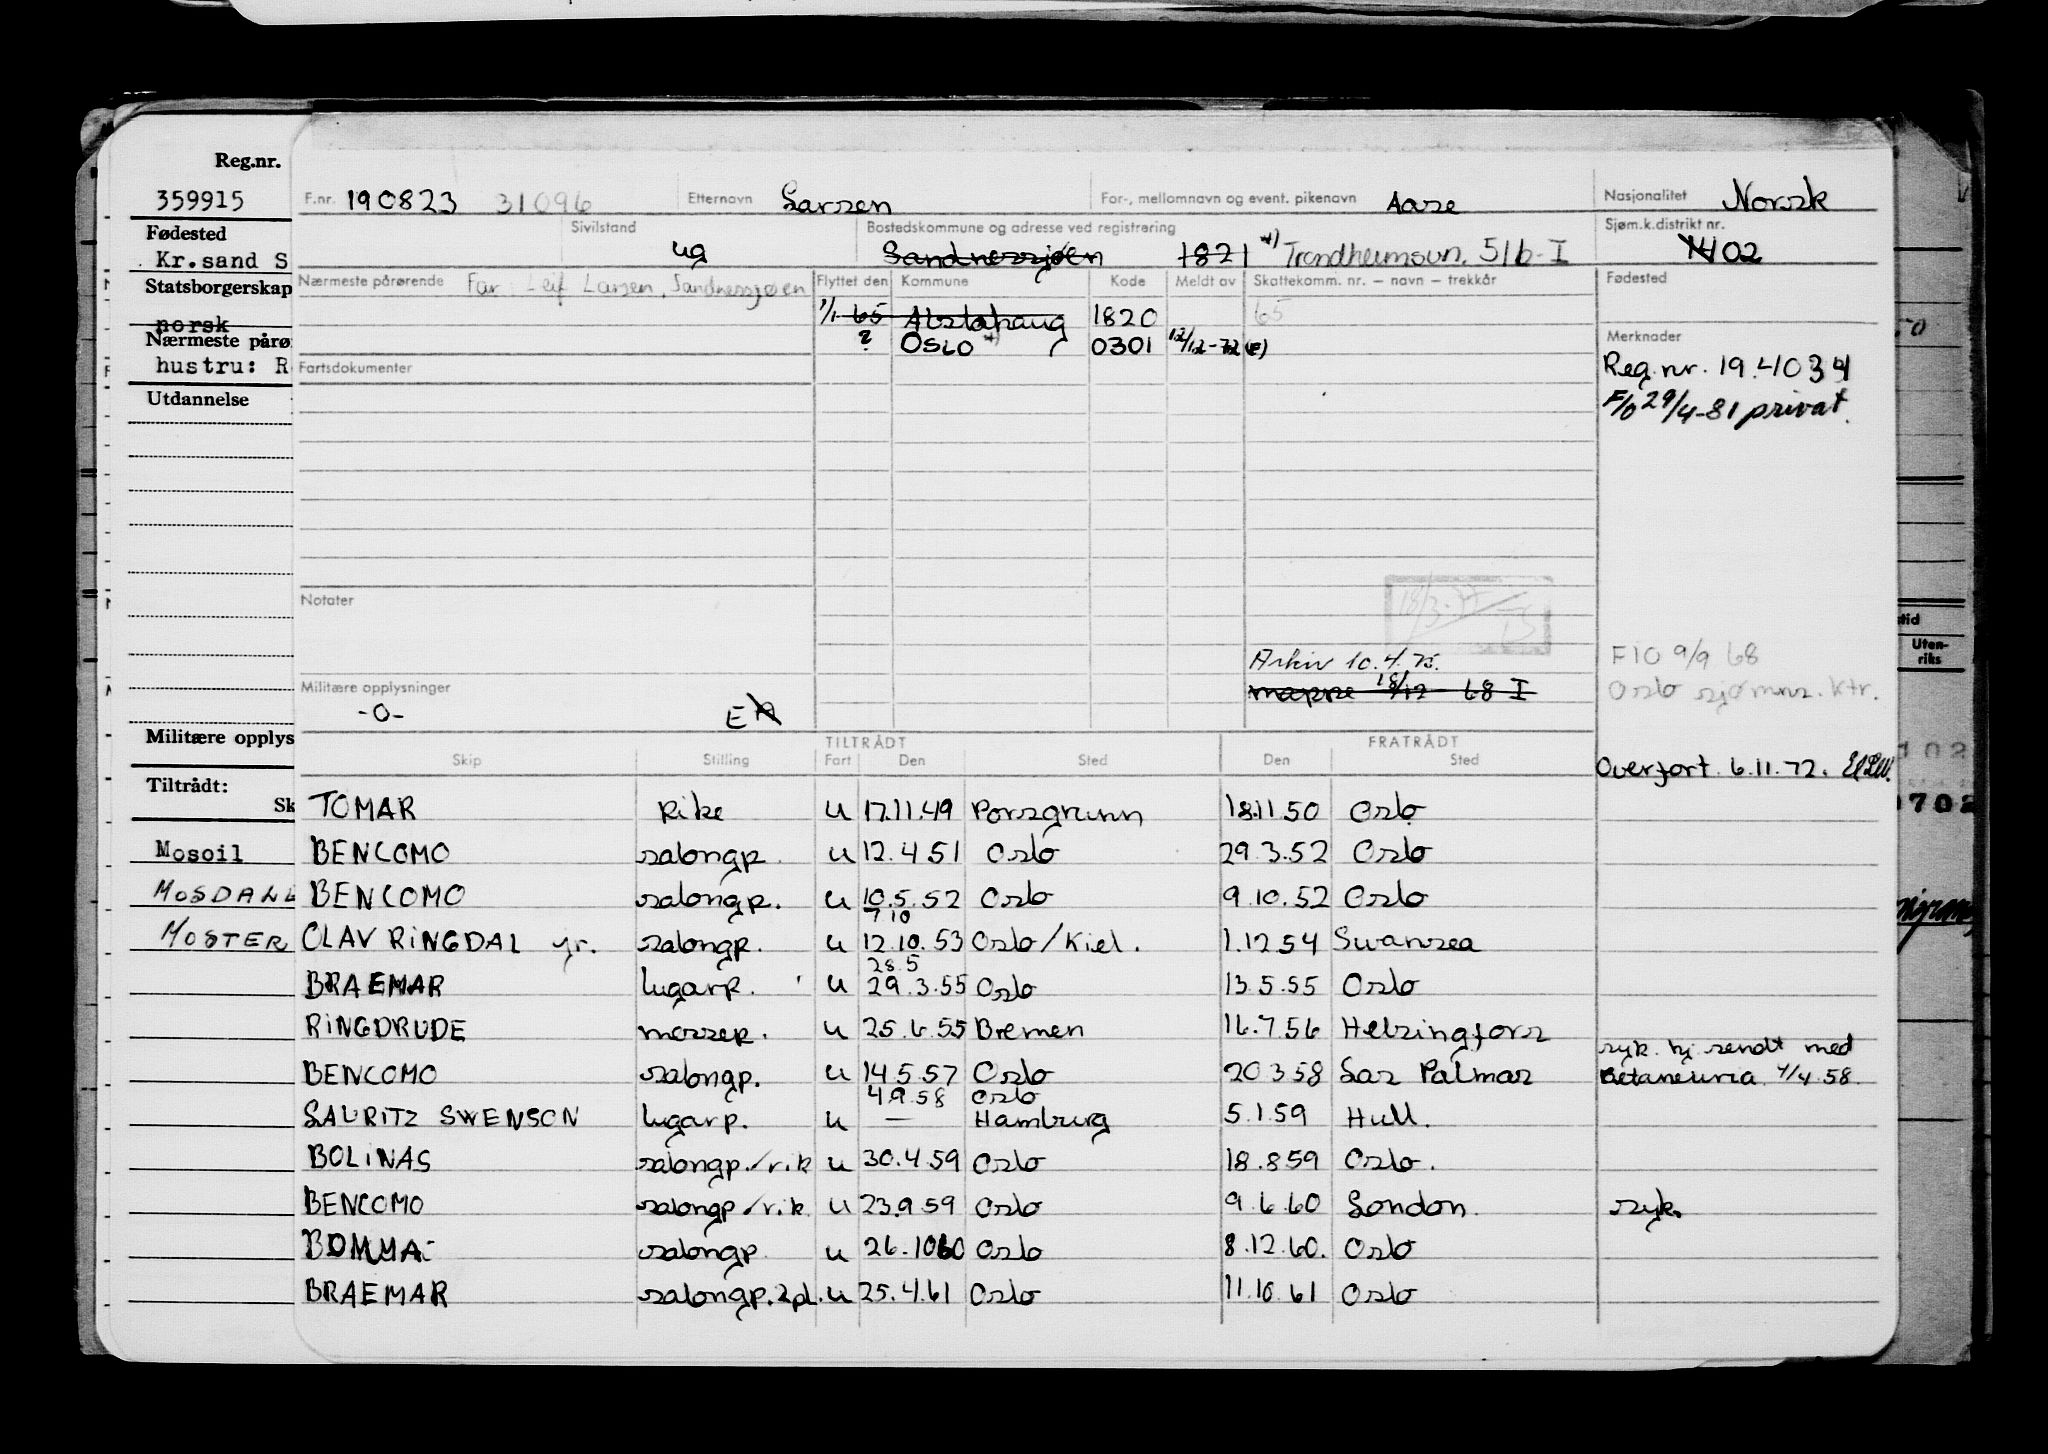 Reg.nr.
359915
Fødested
Kr.sand S
Statsborgerskap
norsk
Nærmeste pårø
hustru: R
Utdannelse
Militære opplys
Tiltrådt:
Sk
Mosoil
MOSDALL
MOSTER
F.nr. 190823 31096 Etternavn Larsen For-, mellomnavn og event. pikenavn Aase Nasjonalitet Norsk
Sivilstand ug Bostedskommune og adresse ved registrering Sandnessjøen 1821 *) Trondheimsvn. 51b-I Sjøm.k.distrikt nr. 02
Nærmeste pårørende Far Leif Larsen, Sandnessjøen Flyttet den Kommune Kode Meldt av Skattekomm. nr. – navn – trekkår Fødested
1/1 65 Alstahaug 1820 65
? OSLO *) 0301 12/12-72 Merknader
Fartsdokumenter Reg.nr. 19.4034
F/O 29/4-81 privat.
Notater
18/3.
Arkiv 10.4.75. F10 9/9 68
Militære opplysninger mappe 18/12 68 I Oslo sjømns. ktr.
-0- E
TILTRÅDT FRATRÅDT
Skip Stilling Fart Den Sted Den Sted Overført 6.11.72.
TOMAR Pike u 17.11.49 Porsgrunn 18.11.50 Oslo
BENCOMO salongp. u 12.4 51 Oslo 29.3.52 Oslo
BENCOMO salongp. u 10.5.52 Oslo 9.10.52 Oslo
7 10
OLAV RINGDAL jr. salongp. u 12.10.53 Oslo/Kiel. 1.12 54 Swansea
28.5
BRAEMAR lugarp. u 29.3.55 Oslo 13.5.55 Oslo
RINGDRUDE messep. u 25.6.55 Bremen 16.7.56 Helsingfors
BENCOMO salongp. u 14 5.57 Oslo 20 3 58 Las Palmas syk. hj. sendt med Betancuria 1/4.58.
4.9.58 Oslo
LAURITZ SWENSON lugarp. u — Hamburg 5.1.59 Hull.
BOLINAS salongp./rik u 30.4.59 Oslo 18.8 59 Oslo.
BENCOMO salongp/rik u 23.9.59 Oslo 9.6.60 London. syk.
BOMMA salongp. u 26.10 60 Oslo 8.12.60. Oslo
BRAEMAR salongp.2pl. u 25.4.61 Oslo 11.10.61 Oslo
tid
Uten-
riks
102
0702